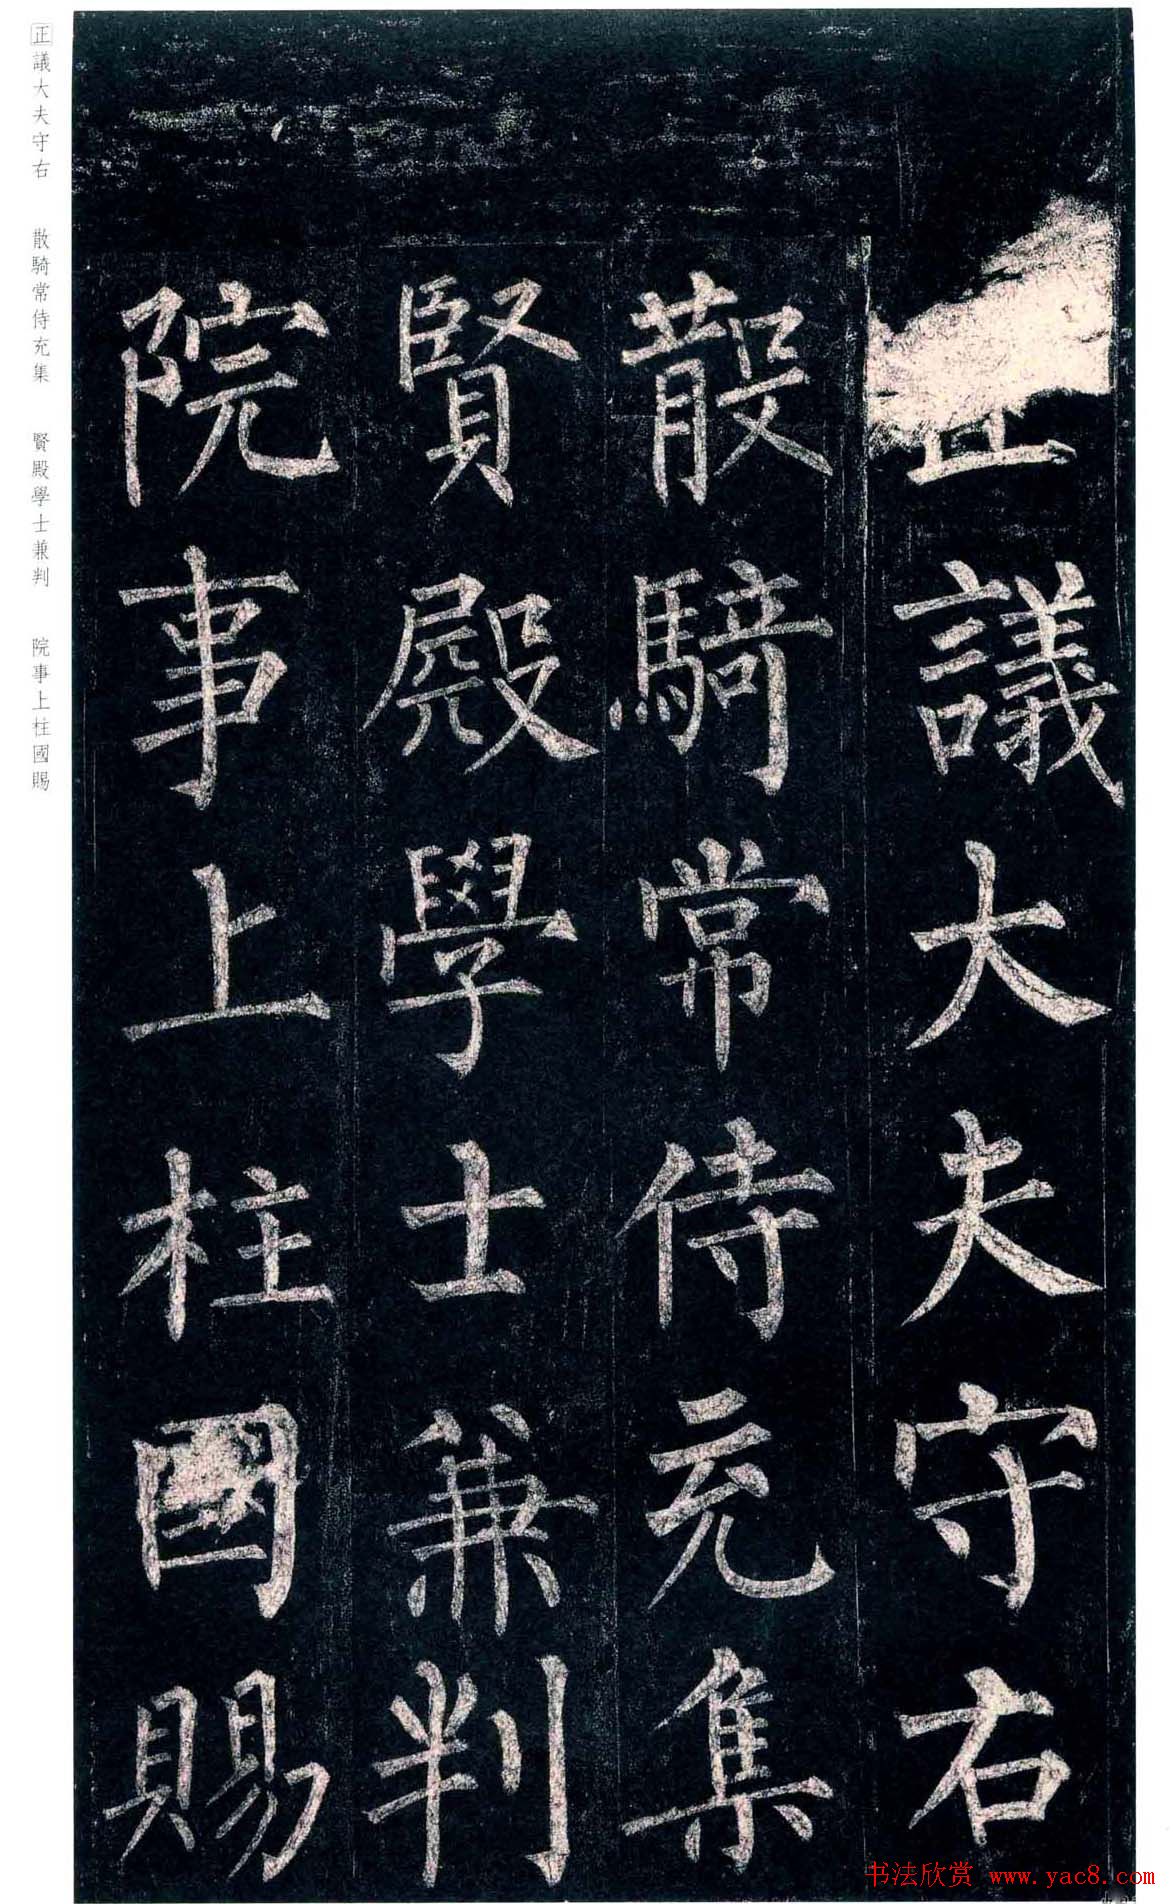 正議大夫守右
散騎常侍充集
賢殿學士兼判
院事上柱國賜
正議大夫守右 散騎常侍充集 賢殿學士兼判 院事上柱國賜
书法欣赏 www.yac8.com